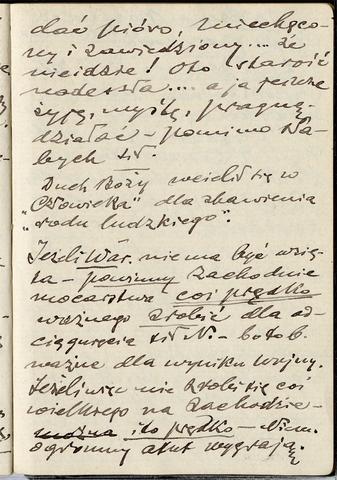 dać pióro, niechęco-
ny i zawiedziony... że
nie idzie! Oto starość
nadeszła... a ja jeszcze
żyję, myślę, pragnę
działać – pomimo sła-
bych sił.
Duch Boży wcielił się w
"Człowieka" dla zbawienia
"rodu ludzkiego".
Jeżeli War. nie ma być wzię-
ta – powinny zachodnie
mocarstwa coś prędko
ważnego zrobić dla od-
ciągnięcia sił N. – bo to b.
ważne dla wyniku wojny.
Jeżeli więc nie zrobi się coś
wielkiego na Zachodzie –
i to prędko – Niem.
ogromny atut wygrają